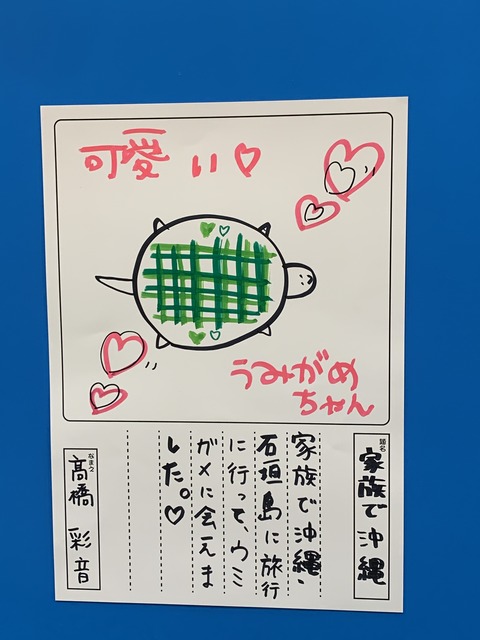 可愛い♡
うみがめ
ちゃん
題名
家族で沖縄
家族で沖縄、
石垣島に旅行
に行って、ウミ
ガメに会えま
した。♡
なまえ
髙橋 彩音